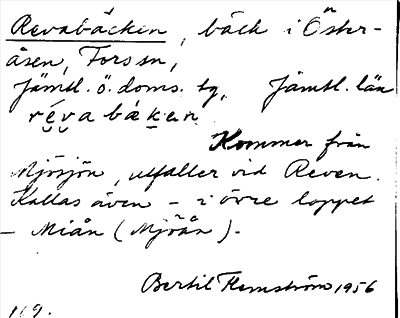 Revabäcken, bäck i Öster-
åsen, Fors sn,
Jämtl. ö. doms. tg, Jämtl. län
révabäken
Kommer från
Mjösjön, utfaller vid Reven.
Kallas även - i övre loppet
- Miån (Mjöån).
Bertil Flemström 1956
119.